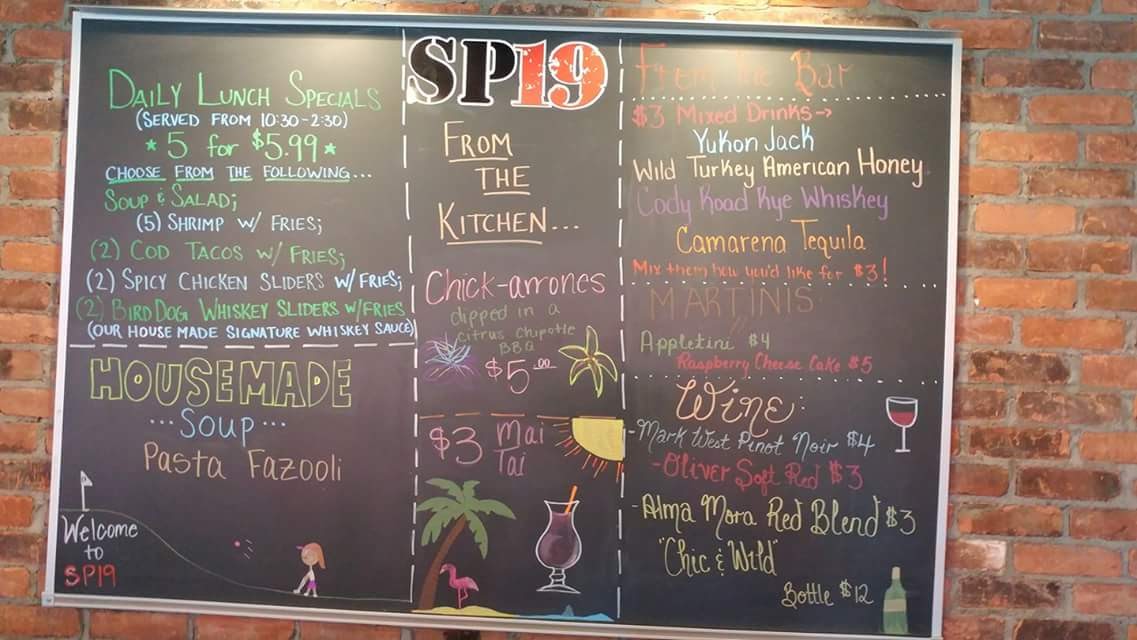 DAILY LUNCH SPECIALS
(SERVED FROM 10:30-2:30)
* 5 for $5.99 *
CHOOSE FROM THE FOLLOWING...
SOUP & SALAD;
(5) SHRIMP W/ FRIES;
(2) COD TACOS W/ FRIES;
(2) SPICY CHICKEN SLIDERS W/FRIES;
(2) BIRD DOG WHISKEY SLIDERS W/FRIES
(OUR HOUSE MADE SIGNATURE WHISKEY SAUCE)
HOUSEMADE
...SOUP...
Pasta Fazooli
Welcome
to
SP19
SP19
FROM
THE
KITCHEN...
Chick-arrones
dipped in a
Citrus Chipotle
BBQ
$5.00
$3 Mai
Tai
From the Bar
$3 Mixed Drinks→
Yukon Jack
Wild Turkey American Honey
Cody Road Rye Whiskey
Camarena Tequila
Mix them how you'd like for $3!
MARTINIS
Appletini $4
Raspberry Cheese Cake $5
Wine:
-Mark West Pinot Noir $4
-Oliver Soft Red $3
-Alma Mora Red Blend $3
"Chic & Wild"
Bottle $12